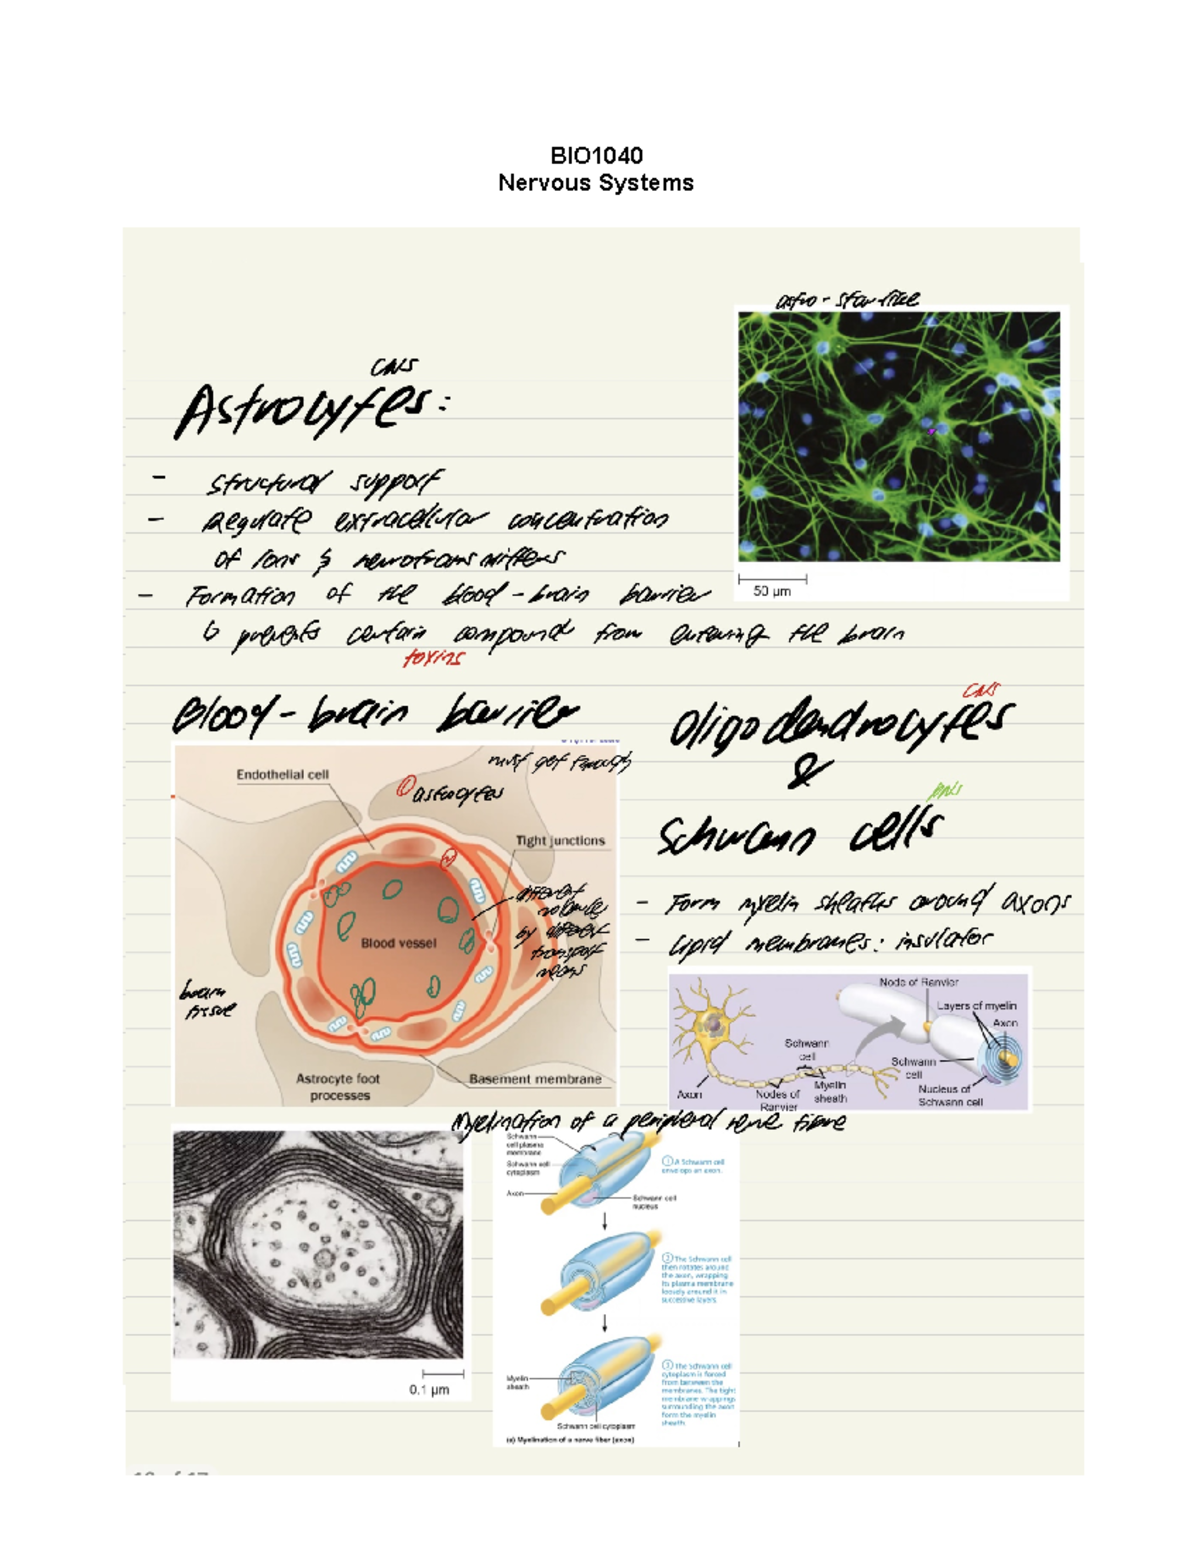 BIO1040
Nervous Systems
astro - star-like
CNS
Astrocytes:
- structural support
- Regulate extracellular concentration
of ions & neurotransmitters
- Formation of the blood-brain barrier
↳ prevents certain compound from entering the brain
toxins
50 µm
Blood-brain barrier
must get through
Endothelial cell
astrocytes
Tight junctions
different
molecules
by different
transport
means
Blood vessel
brain
tissue
Astrocyte foot
processes
Basement membrane
CNS
Oligodendrocytes
&
PNS
Schwann cells
- Form myelin sheaths around axons
- Lipid membranes: insulator
Node of Ranvier
Layers of myelin
Axon
Schwann
cell
Schwann
cell
Nucleus of
Schwann cell
Axon
Nodes of
Ranvier
Myelin
sheath
Myelination of a peripheral nerve
0.1 µm
Schwann
cell plasma
membrane
Schwann cell
cytoplasm
Axon
Schwann cell
nucleus
① A Schwann cell
envelops an axon.
② The Schwann cell
then rotates around
the axon, wrapping
its plasma membrane
loosely around it in
successive layers.
③ The Schwann cell
cytoplasm is forced
from between the
membranes. The tight
membrane wrappings
surrounding the axon
form the myelin
sheath.
Myelin
sheath
Schwann cell cytoplasm
(a) Myelination of a nerve fiber (axon)